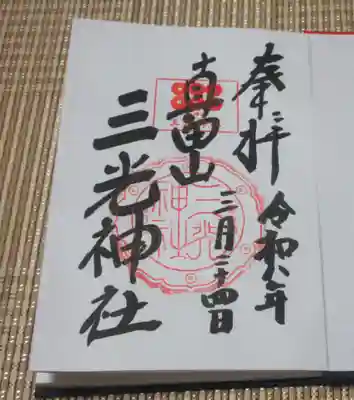 奉拝
令和六年
三月二十四日
真田山
三光神社